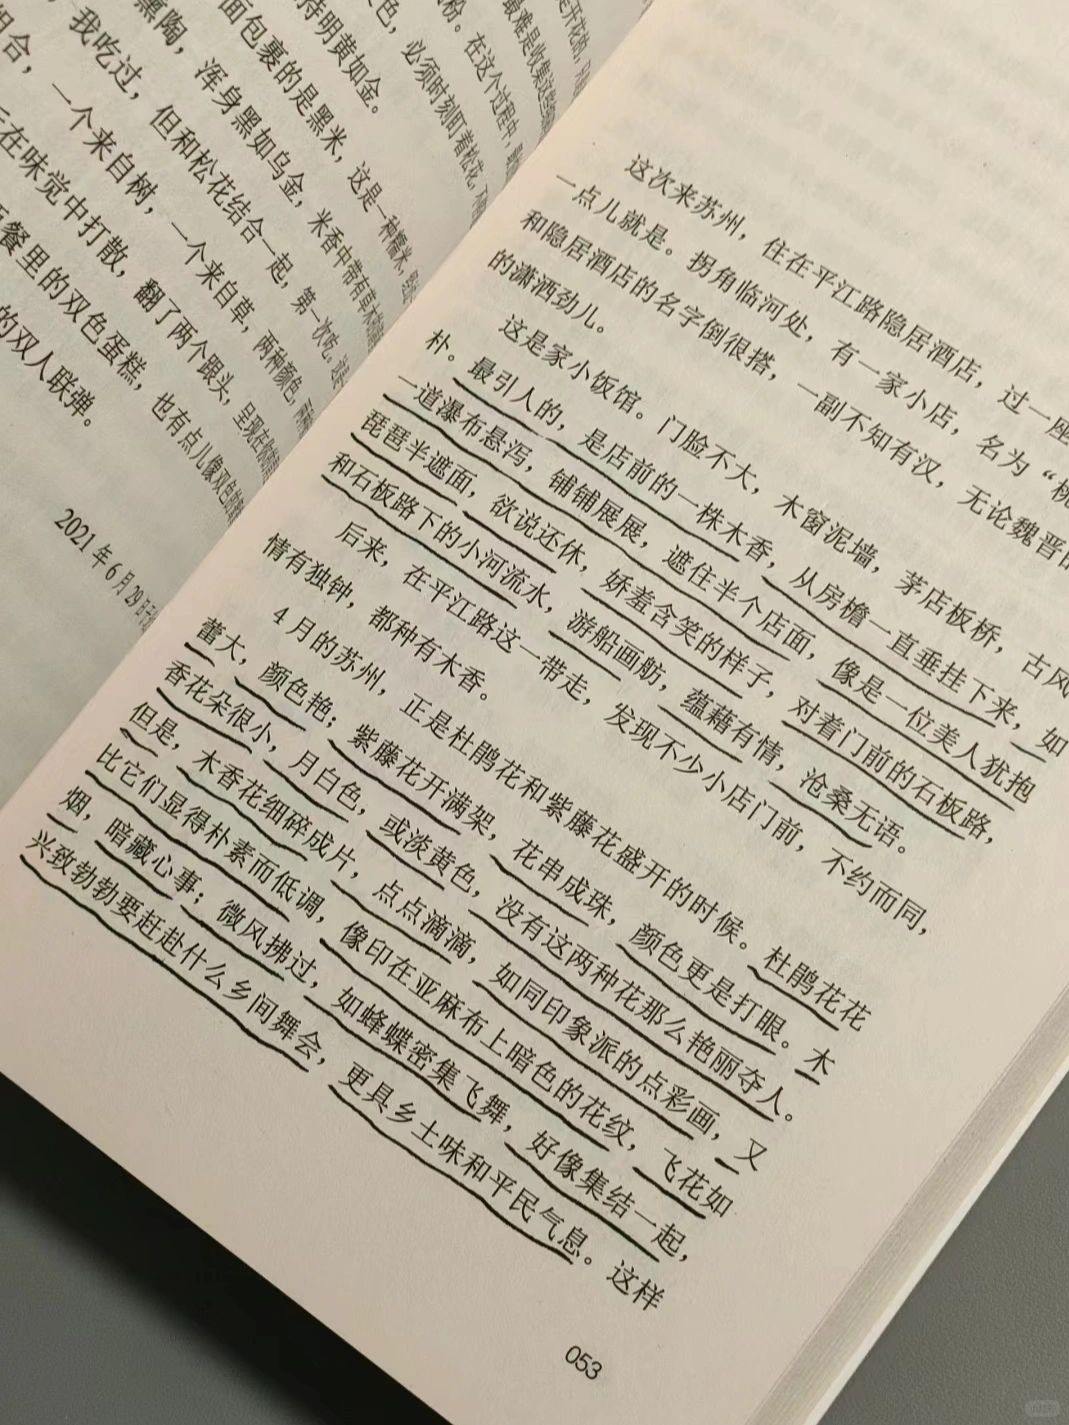 最难是收集这些
粉。在这个过程中，
色，必须时刻盯着松花，
持明黄如金。
面包裹的是黑米，这是一种糯米，
熏陶，浑身黑如乌金，米香中带有草木
我吃过，但和松花结合一起，第一次吃。
组合，一个来自树，一个来自草，两种颜色，
在味觉中打散，翻了两个跟头，呈现在
餐里的双色蛋糕，也有点儿像双色的
的双人联弹。
2021年6月29日
这次来苏州，住在平江路隐居酒店，过一座
一点儿就是。拐角临河处，有一家小店，名为“桃
和隐居酒店的名字倒很搭，一副不知有汉，无论魏晋
的潇洒劲儿。
这是家小饭馆。门脸不大，木窗泥墙，茅店板桥，古风
朴。最引人的，是店前的一株木香，从房檐一直垂挂下来，如
一道瀑布悬泻，铺铺展展，遮住半个店面，像是一位美人犹抱
琵琶半遮面，欲说还休，娇羞含笑的样子，对着门前的石板路，
和石板路下的小河流水，游船画舫，蕴藉有情，沧桑无语。
后来，在平江路这一带走，发现不少小店门前，不约而同，
情有独钟，都种有木香。
4月的苏州，正是杜鹃花和紫藤花盛开的时候。杜鹃花花
蕾大，颜色艳；紫藤花开满架，花串成珠，颜色更是打眼。木
香花朵很小，月白色，或淡黄色，没有这两种花那么艳丽夺人。
但是，木香花细碎成片，点点滴滴，如同印象派的点彩画，又
比它们显得朴素而低调，像印在亚麻布上暗色的花纹，飞花如
烟，暗藏心事；微风拂过，如蜂蝶密集飞舞，好像集结一起，
兴致勃勃要赶赴什么乡间舞会，更具乡土味和平民气息。这样
053